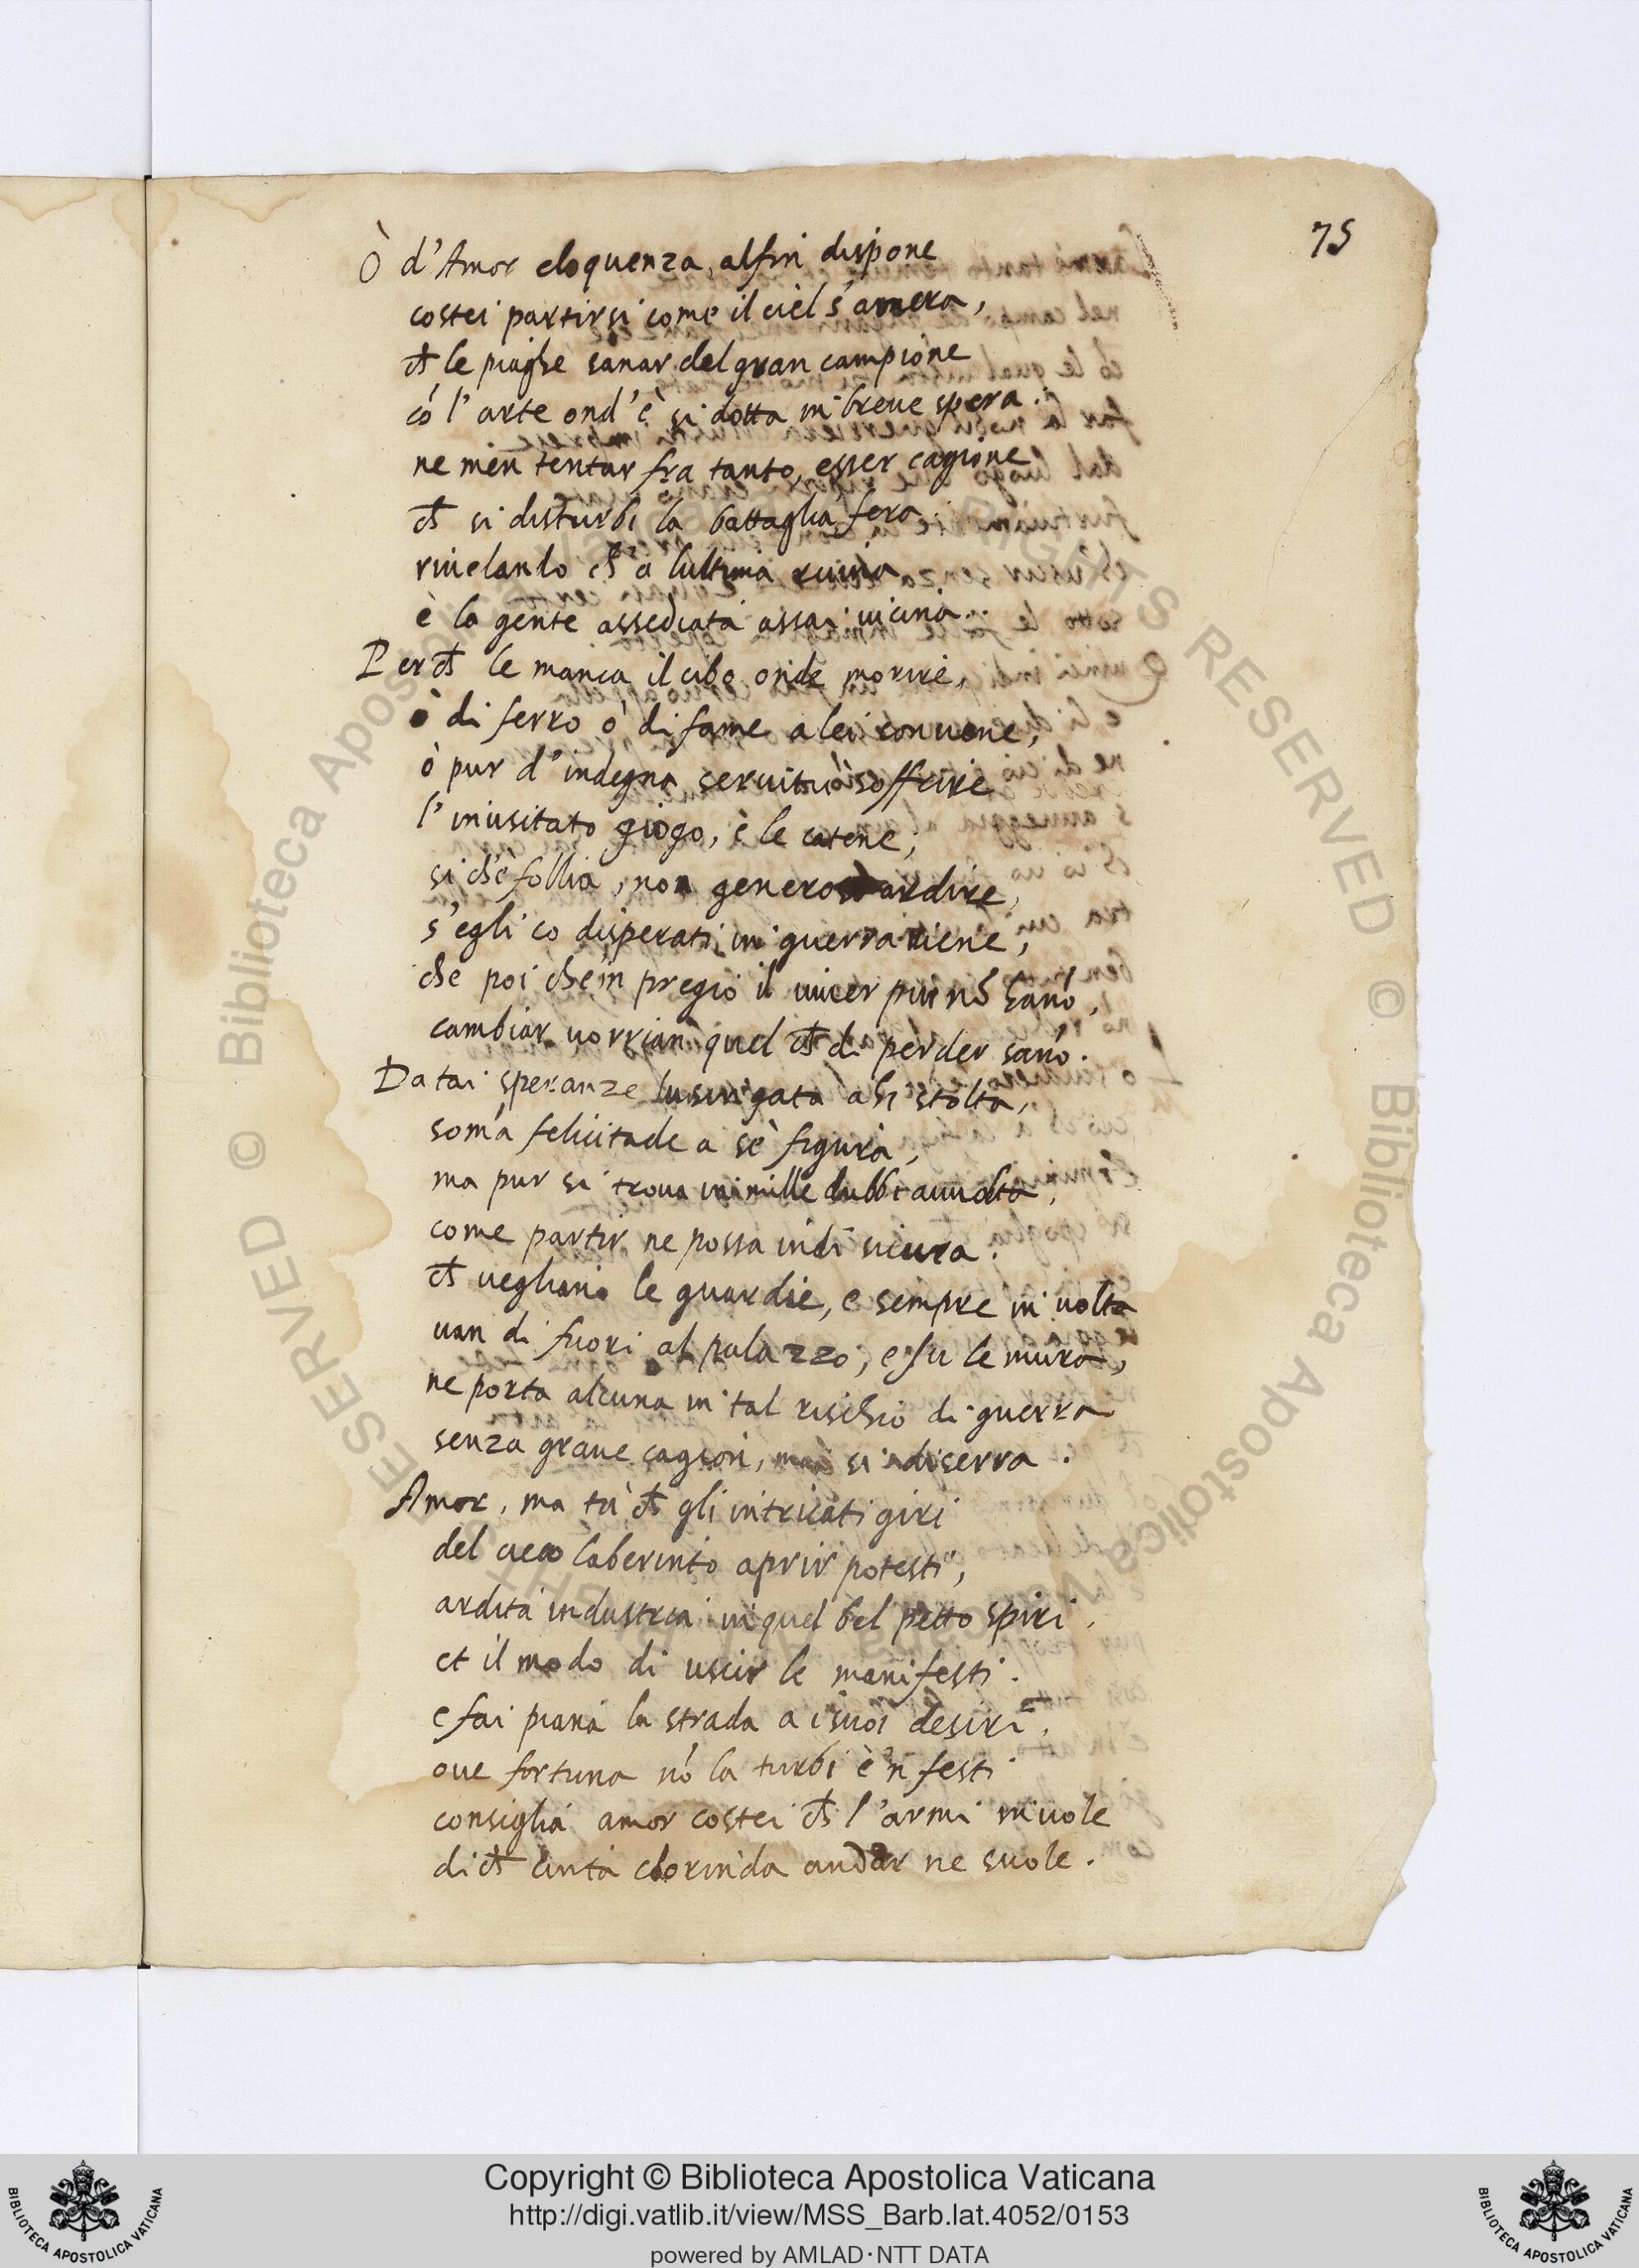 75
Ò d'Amor eloquenza, alfin dispone
costei partirsi come il ciel s'annera,
ch̃ le piaghe sanar del gran campione
cõ l'arte ond'è si dotta in breue spera.
ne men tentar fra tanto, esser cagione
ch̃ si disturbi la battaglia fera.
riuelando ch̃ a lultima ruina
è la gente assediata assai uicina.
Perch̃ le manca il cibo onde morire,
ò di ferro ò di fame a lei conuene,
ò pur d'indegna seruitù soffrire
l'inusitato giogo, è le catene,
si ch'è follia, non ardire,
s'egli co disperati in guerra uiene,
che poi che in pregio il uiuer piu nõ hanõ,
cambiar uorrian quel ch̃ di perder sanõ.
Da tai speranze lusingata ahi stolta,
som̃a felicitade a sè figura,
ma pur si troua in mille dubbi auuolta,
come partir ne possa indi sicura.
ch̃ uegliano le guardie, e sempre in uolta
uan di fuori al palazzo, e su le mura,
ne porta alcuna in tal rischio di guerra
senza graue cagion, mai si diserra.
Amor, ma tù ch̃ gli intricati giri
del cieco laberinto aprir potesti,
ardita industria in quel bel petto spiri,
et il modo di uscir le manifesti.
e fai piana la strada a i suoi desiri,
oue fortuna nõ la turbi è 'nfesti
consiglia amor costei ch̃ l'armi inuole
di ch̃ cinta clorinda andar ne suole.
© Biblioteca Apostolica Vaticana ALL RIGHTS RESERVED
Copyright © Biblioteca Apostolica Vaticana
http://digi.vatlib.it/view/MSS_Barb.lat.4052/0153
powered by AMLAD·NTT DATA
BIBLIOTECA APOSTOLICA VATICANA
BIBLIOTECA APOSTOLICA VATICANA